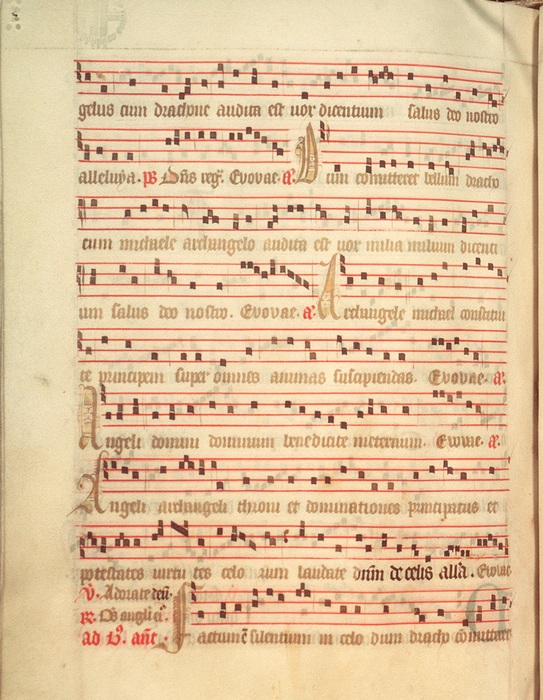 gelus cum drachone audita est uox dicentium salus deo nostro
alleluya. ps Dñs reg̃. Evovae. a. Dum comitteret bellum dracho
cum michaele archangelo audita est uox milia milium dicenti
um salus deo nostro. Evovae. a. Archangele michael constitui
te principem super omnes animas suscipiendas. Evovae. a.
Angeli domini dominum benedicite ineternum. Evovae. a.
Angeli archangeli throni et dominationes principatus et
potestates uirtu tes celo rum laudate dñm de celis all'a. Evovae
v. Adorate
R.
ad B. añe. Factum ẽ silentium in celo dum dracho cõmitteret